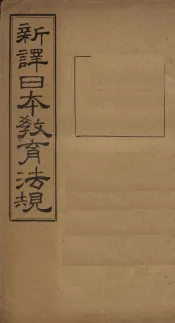 新譯日本教育法規